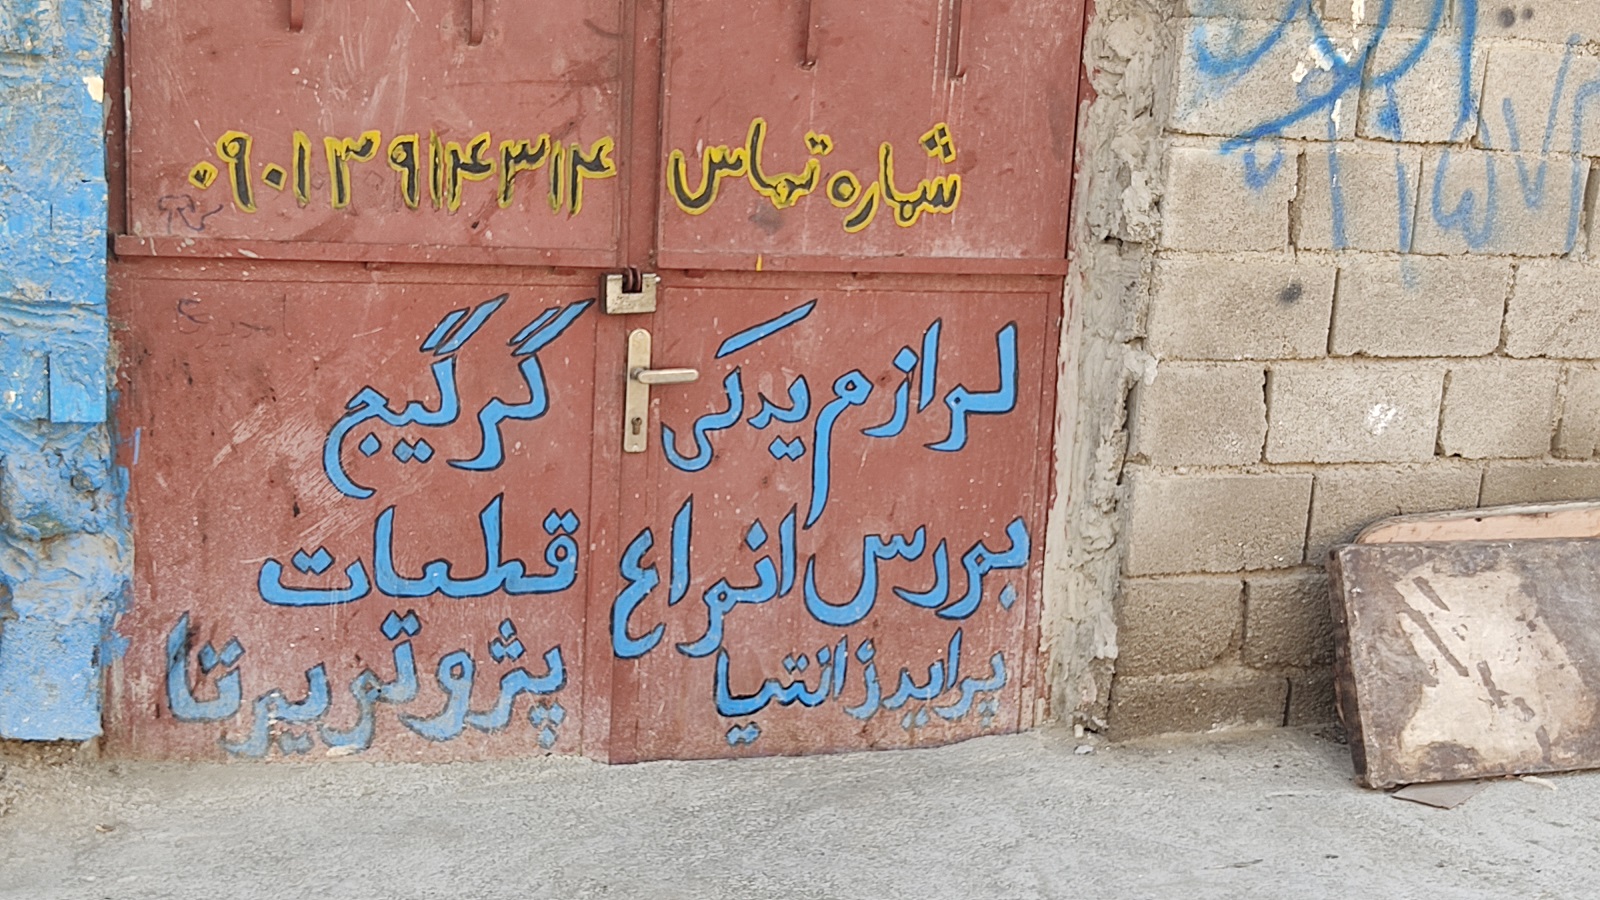 شماره تماس ۰۹۰۱۳۹۱۴۳۱۴
لوازم یدکی گرگیج
بورس انواع قطیات
پراید زانتیا پژو تویرتا